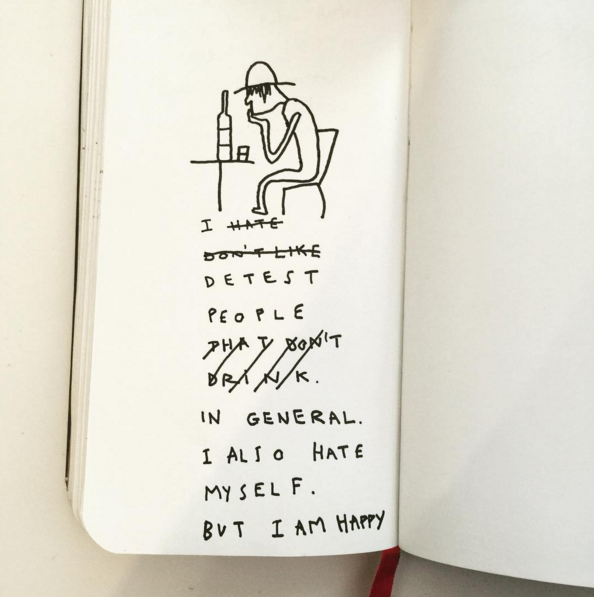 I HATE
DON'T LIKE
DETEST
PEOPLE
THAT DON'T
DRINK.
IN GENERAL.
I ALSO HATE
MYSELF.
BUT I AM HAPPY